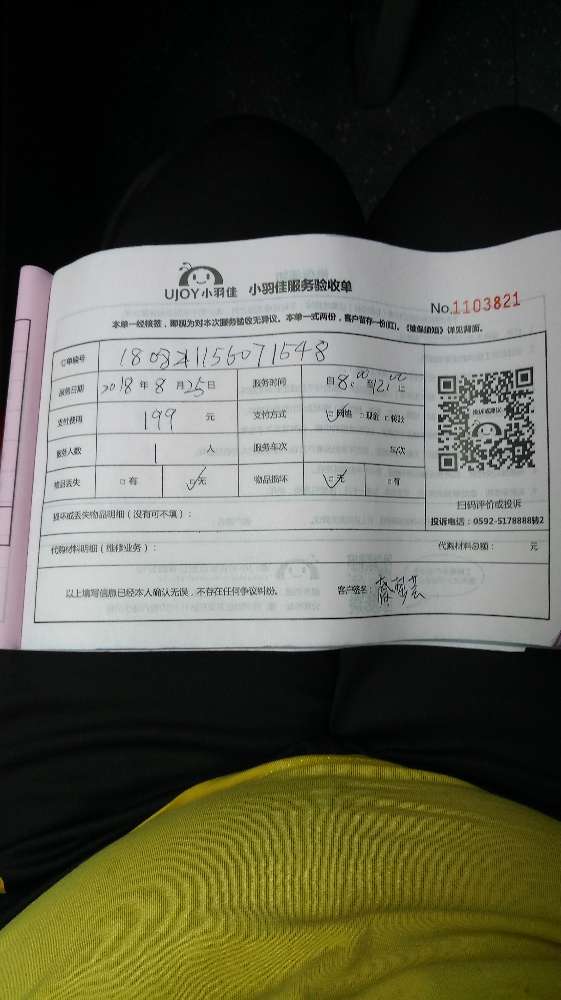 UJOY小羽佳 小羽佳服务验收单
No.1103821
本单一经核签，即视为对本次服务验收无异议。本单一式两份，客户留存一份(红)。《维保须知》详见背面。
订单编号
服务日期 2018年8月25日 服务时间 自8:00至12:00止
支付费用 199 元 支付方式 ☑网络 □现金 □转账
服务人数 1 人 服务车次 车/次
物品丢失 □有 ☑无 物品损坏 ☑无 □有
投诉或建议
扫码评价或投诉
投诉电话：0592-5178888转2
损坏或丢失物品明细（没有可不填）：
代购材料明细（维修业务）： 代购材料总额： 元
以上填写信息已经本人确认无误，不存在任何争议纠纷。 客户签名：